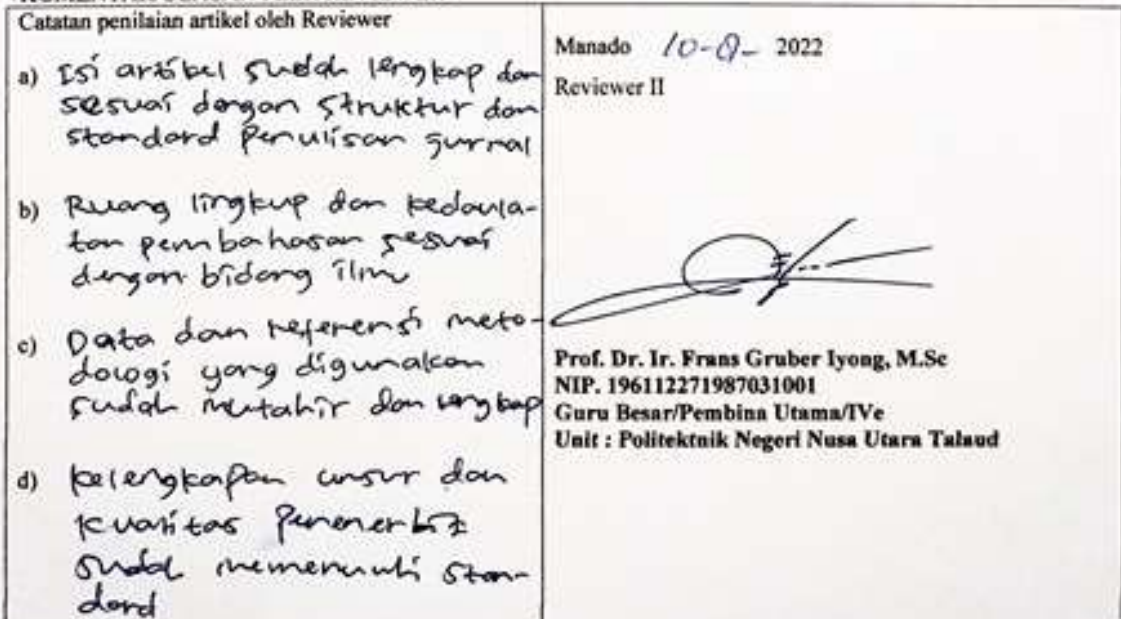 Catatan penilaian artikel oleh Reviewer
a) Isi artikel sudah lengkap dan
sesuai dengan struktur dan
standard penulisan jurnal
b) Ruang lingkup dan kedaula-
tan pembahasan sesuai
dengan bidang ilmu
c) Data dan referensi meto-
dologi yang digunakan
sudah mutahir dan lengkap
d) kelengkapan unsur dan
kualitas
sudah memenuhi stan-
dard
Manado 10- - 2022
Reviewer II
Prof. Dr. Ir. Frans Gruber Iyong, M.Sc
NIP. 196112271987031001
Guru Besar/Pembina Utama/IVe
Unit : Politektnik Negeri Nusa Utara Talaud